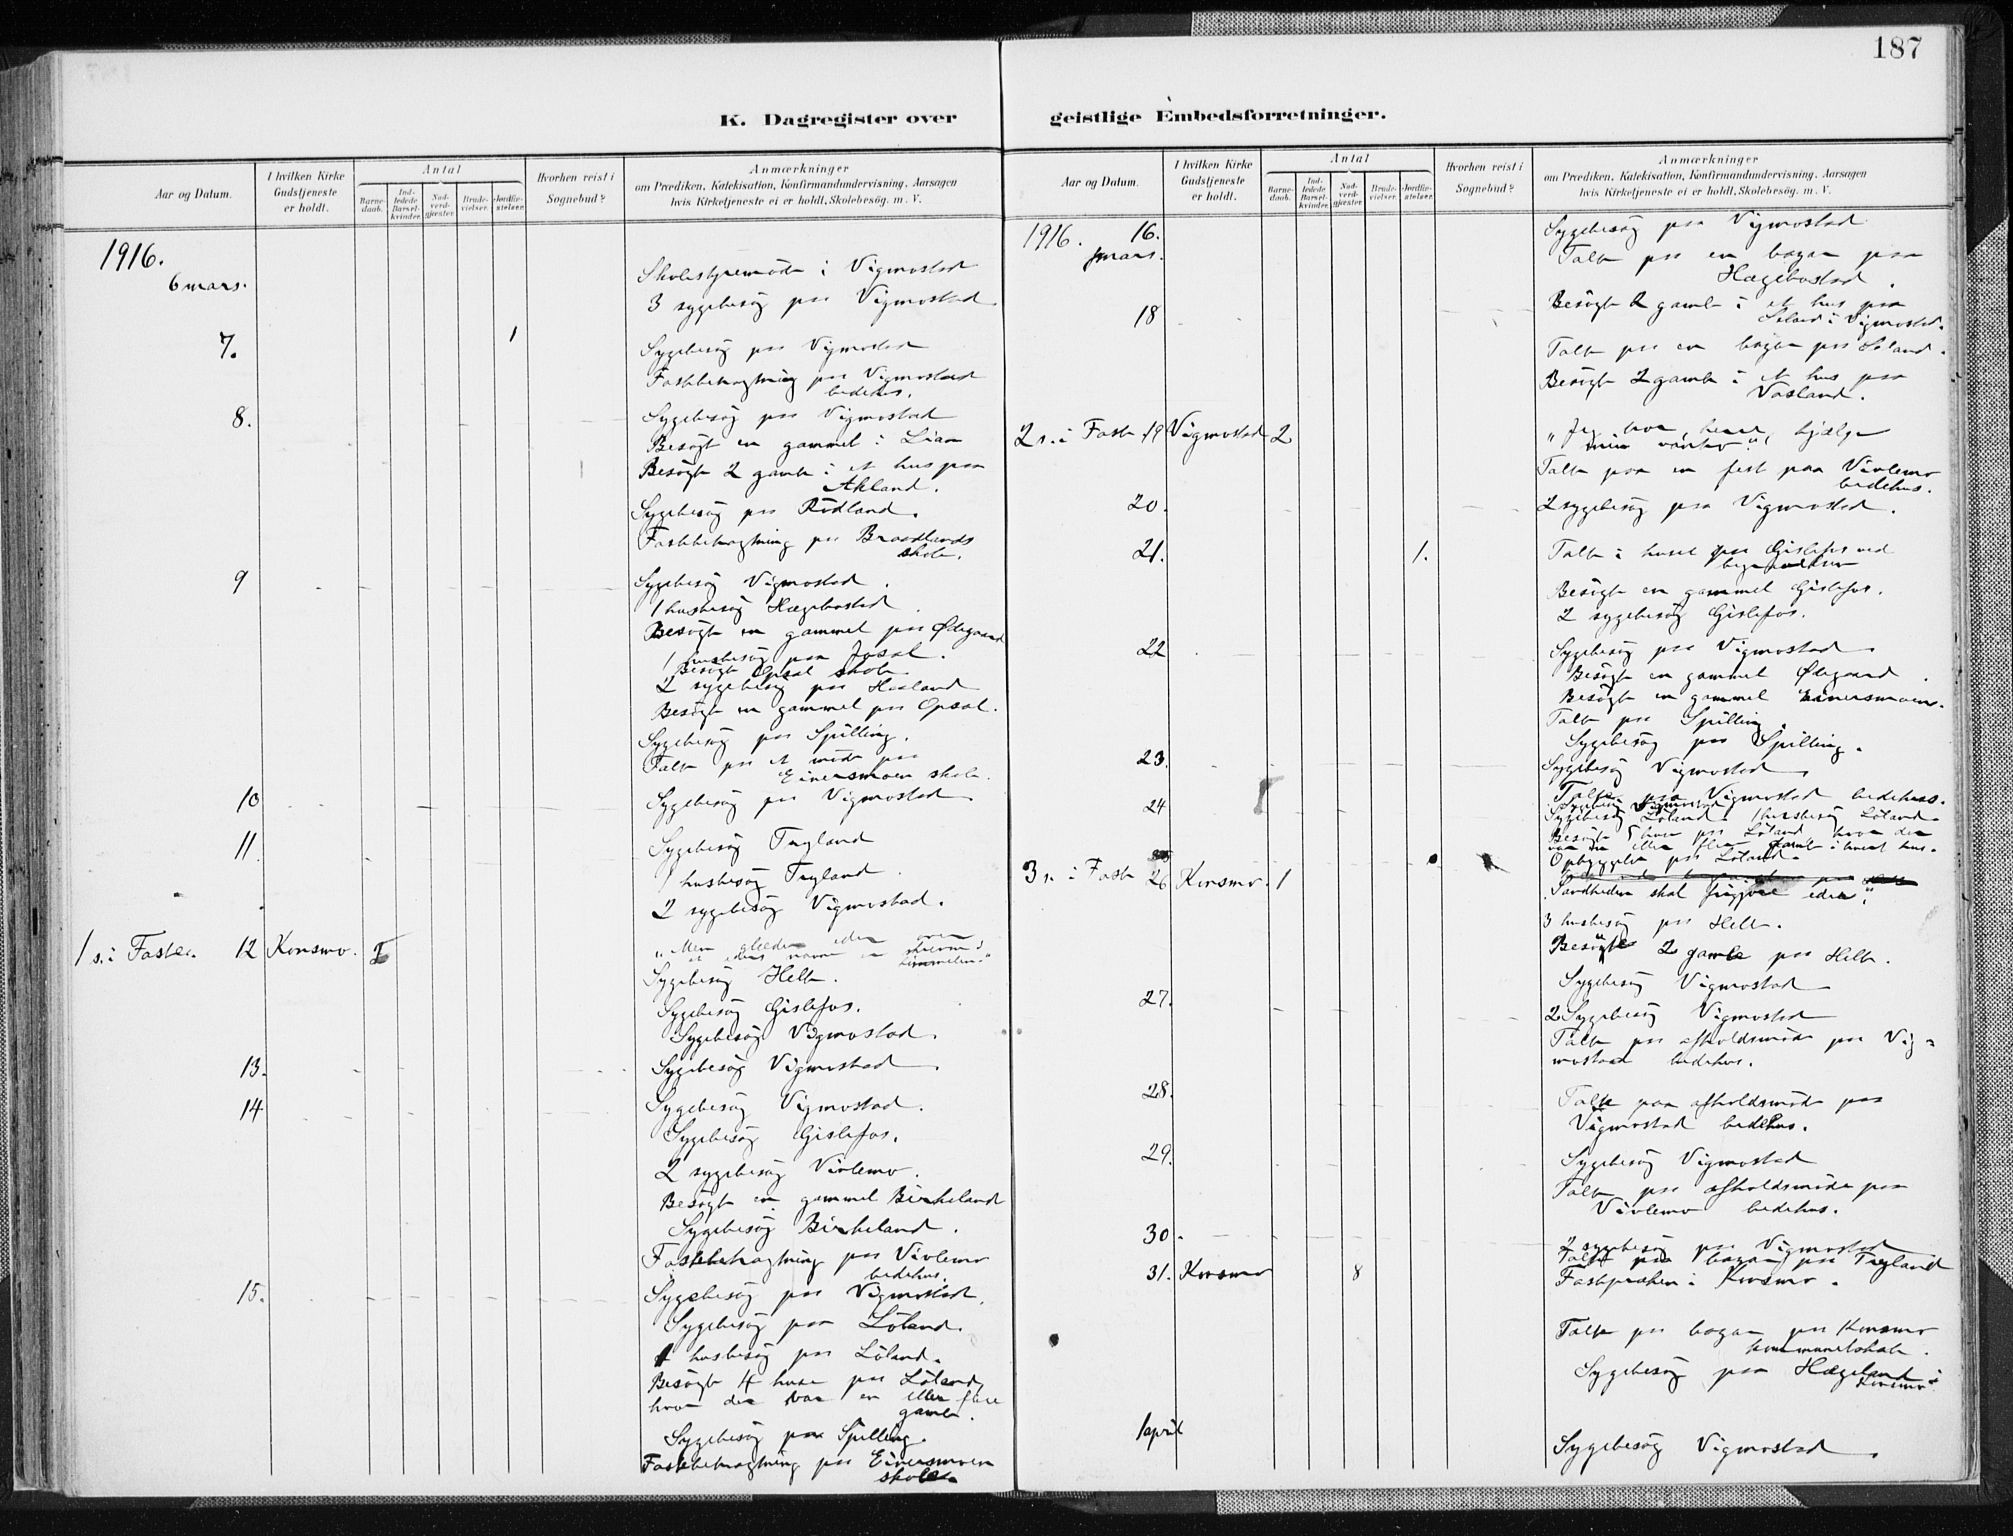 187
K. Dagregister over geistlige Embedsforretninger.
Aar og Datum.
I hvilken Kirke
Gudstjeneste
er holdt.
Antal
Barne-
daab.
Ind-
ledede
Barsel-
kvinder.
Nad-
verd-
gjæster.
Brude-
vielser.
Jordfæ-
stelser.
Hvorhen reist i
Sognebud?
Anmærkninger
om Prædiken, Katekisation, Konfirmandundervisning, Aarsagen
hvis Kirketjeneste ei er holdt, Skolebesög, m. V.
1916.
6 mars.
Skolestyremöde i Vigmostad
3 sygebesög paa Vigmostad
7. 1
Sygebesög paa Vigmostad
Fastebetragtning paa Vigmostad
bedehus.
8.
Sygebesög paa Vigmostad
Besögte en gammel i Lian
Besögte 2 gamle i et hus paa
Akland.
Sygebesög paa Rödland.
Fastebetragtning paa Braadlands
skole.
9
Sygebesög Vigmostad.
1 husbesög Hægebostad
Besögte en gammel paa Ødegaard
1 husbesög paa Josal.
Besögte Opsal skole
2 sygebesög paa Haaland
Besögte en gammel paa Opsal.
Sygebesög paa Spilling.
Talte paa et möde paa
Einersmoen skole.
10
Sygebesög paa Vigmostad
11
Sygebesög Trygland
1 husbesög Trygland
2 sygebesög Vigmostad.
1 s. i Faste. 12 Konsmo.
"Men glæder eder over
at eders navne er skrevne i
himmelen."
Sygebesög Helle.
Sygebesög Gislefos.
Sygebesög Vigmostad.
13.
Sygebesög Vigmostad
14
Sygebesög Vigmostad.
Sygebesög Gislefos.
2 sygebesög Vivlemo.
Besögte en gammel Birkeland
Sygebesög Birkeland.
Fastebetragtning paa Vivlemo
bedehus.
15.
Sygebesög paa Vigmostad.
Sygebesög paa Löland.
1 husbesög paa Löland.
Besögte 4 huse paa Löland,
hvor der var en eller flere
gamle.
Sygebesög paa Spilling.
Fastebetragtning paa Einersmoen
skole
Aar og Datum.
I hvilken Kirke
Gudstjeneste
er holdt.
Antal
Barne-
daab.
Ind-
ledede
Barsel-
kvinder.
Nad-
verd-
gjæster.
Brude-
vielser.
Jordfæ-
stelser.
Hvorhen reist i
Sognebud?
Anmærkninger
om Prædiken, Katekisation, Konfirmandundervisning, Aarsagen
hvis Kirketjeneste ei er holdt, Skolebesög, m. V.
1916. 16.
mars.
Sygebesög paa Vigmostad
Talte paa en bazar paa
Hægebostad.
18
Besögte 2 gamle i et hus paa
Söland i Vigmostad.
Talte paa en bazar paa Söland.
Besögte 2 gamle i et hus paa
Vasland.
2 s. i Faste 19 Vigmostad 2
"Jeg tror, herre, hjælp
min vantro".
Talte paa en fest paa Vivlemo
bedehus.
20.
2 sygebesög paa Vigmostad.
21. 1.
Talte i huset paa Gislefos ved
begravelsen
Besögte en gammel Gislefos.
2 sygebesög Gislefos.
22
Sygebesög paa Vigmostad
Besögte en gammel Ødegaard.
Besögte en gammel Einersmoen.
Talte paa Spilling.
Sygebesög paa Spilling.
23.
Sygebesög Vigmostad
Talte paa Vigmostad bedehus.
24
Sygebesög Vigmostad
Sygebesög Löland. 1 husbesög Löland.
Besögte 5 huse paa Löland, hvor der
var en eller flere gamle i hvert hus.
Opbyggelse paa Löland.
3 s. i Faste 26 Konsmo. 1
"Sandheden skal frigjöre eder".
3 husbesög paa Helle.
Besögte 2 gamle paa Helle.
Sygebesög Vigmostad
27.
2 Sygebesög Vigmostad
Talte paa afholdsmöde paa Vig-
mostad bedehus.
28.
Talte paa afholdsmöde paa
Vigmostad bedehus.
29.
Sygebesög Vigmostad
Talte paa afholdsmöde paa
Vivlemo bedehus.
30.
2 sygebesög paa Vigmostad
Talte paa bazar paa Trygland
31. Konsmo 8
Fastepræken i Konsmo.
Talte paa bazar paa Konsmo
kommunelokale.
Sygebesög paa Hægeland i
Konsmo
1 april
Sygebesög Vigmostad.